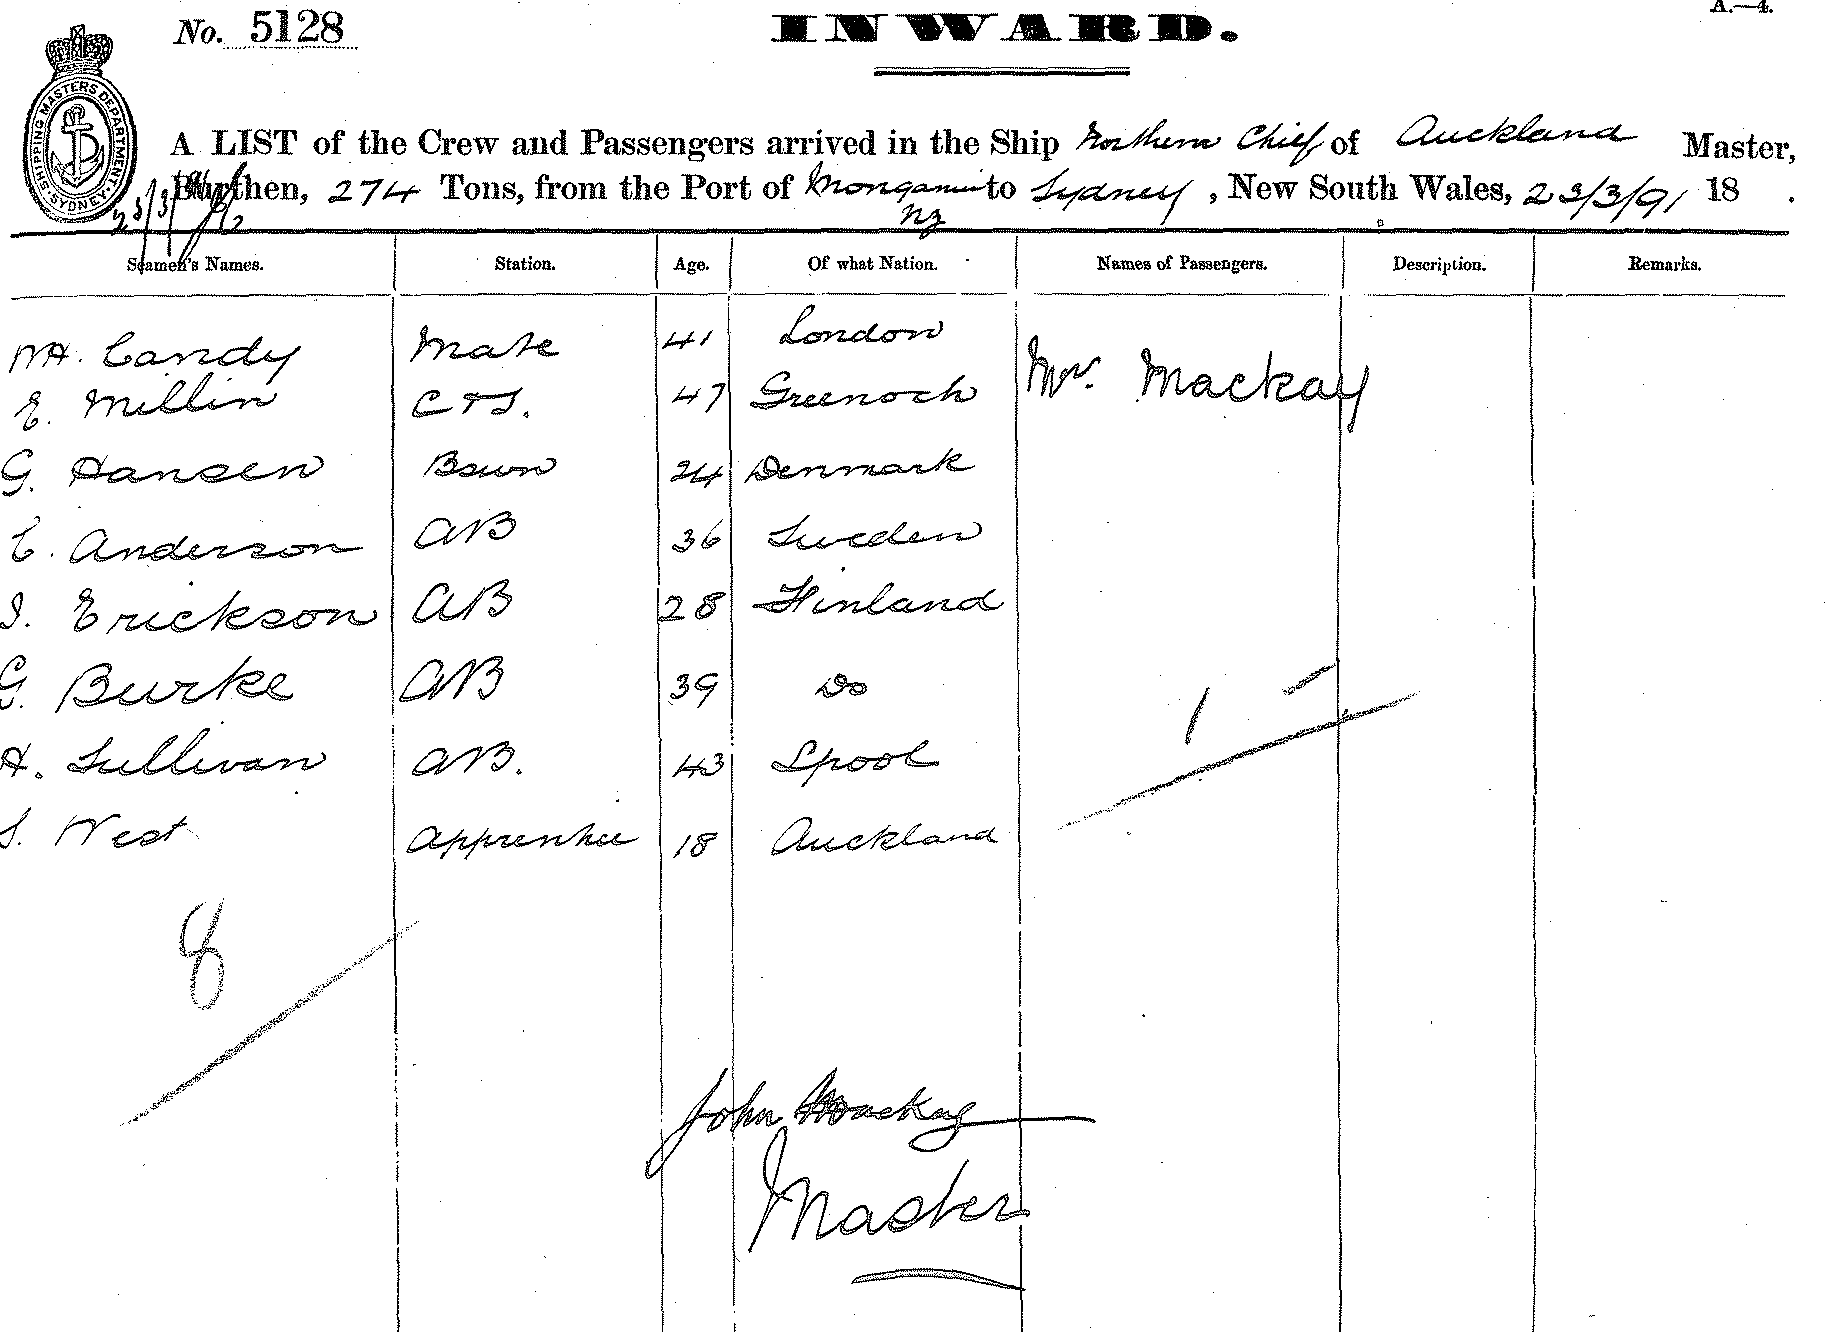 No. 5128
INWARD.
A.—4.
SHIPPING MASTERS DEPARTMENT
SYDNEY
A LIST of the Crew and Passengers arrived in the Ship Northern Chief of Auckland Master,
Burthen, 274 Tons, from the Port of Monganui to Sydney, New South Wales, 23/3/91 18 .
NZ
23/3/91
Seamen's Names. Station. Age. Of what Nation. Names of Passengers. Description. Remarks.
WH. Candy Mate 41 London
Mrs. Mackay
E. Millin C & S. 47 Greenock
G. Hansen Bswn 24 Denmark
C. Anderson AB 36 Sweden
I. Erickson AB 28 Finland
G. Burke AB 39 Do
1
H. Sullivan AB. 43 Lpool
S. West Apprentice 18 Auckland
8
John Mackay
Master